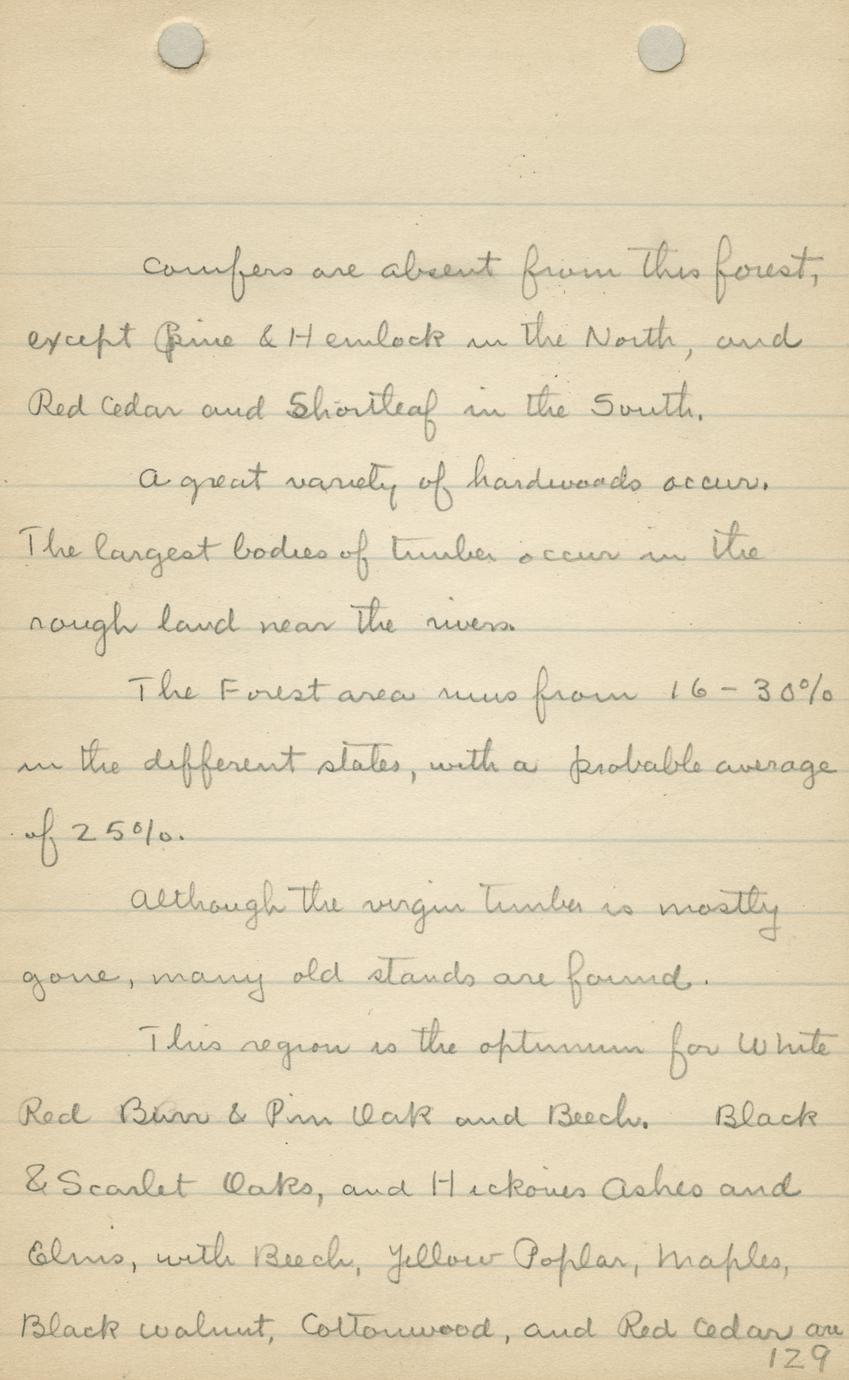 Conifers are absent from this forest,
except Pine & Hemlock in the North, and
Red Cedar and Shortleaf in the South.
A great variety of hardwoods occur.
The largest bodies of timber occur in the
rough land near the rivers.
The Forest area runs from 16 - 30%
in the different states, with a probable average
of 25%.
Although the virgin timber is mostly
gone, many old stands are found.
This region is the optimum for White
Red Burr & Pin Oak and Beech. Black
& Scarlet Oaks, and Hickories Ashes and
Elms, with Beech, Yellow Poplar, Maples,
Black walnut, Cottonwood, and Red Cedar are
129